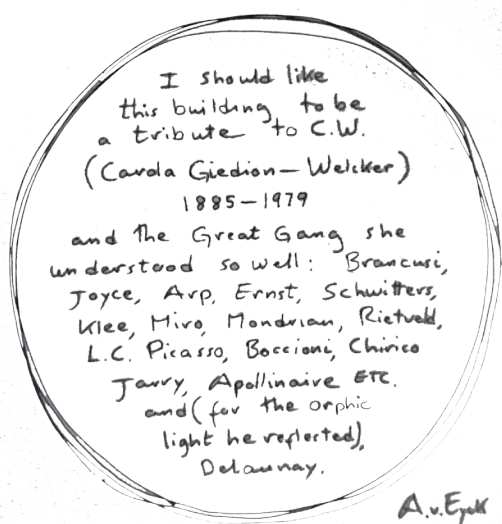 I should like
this building to be
a tribute to C.W.
(Carola Giedion-Welcker)
1885-1979
and the Great Gang she
understood so well: Brancusi,
Joyce, Arp, Ernst, Schwitters,
Klee, Miro, Mondrian, Rietveld,
L.C. Picasso, Boccioni, Chirico
Jarry, Apollinaire ETC.
and (for the orphic
light he reflected),
Delaunay.
A.v.Eyck